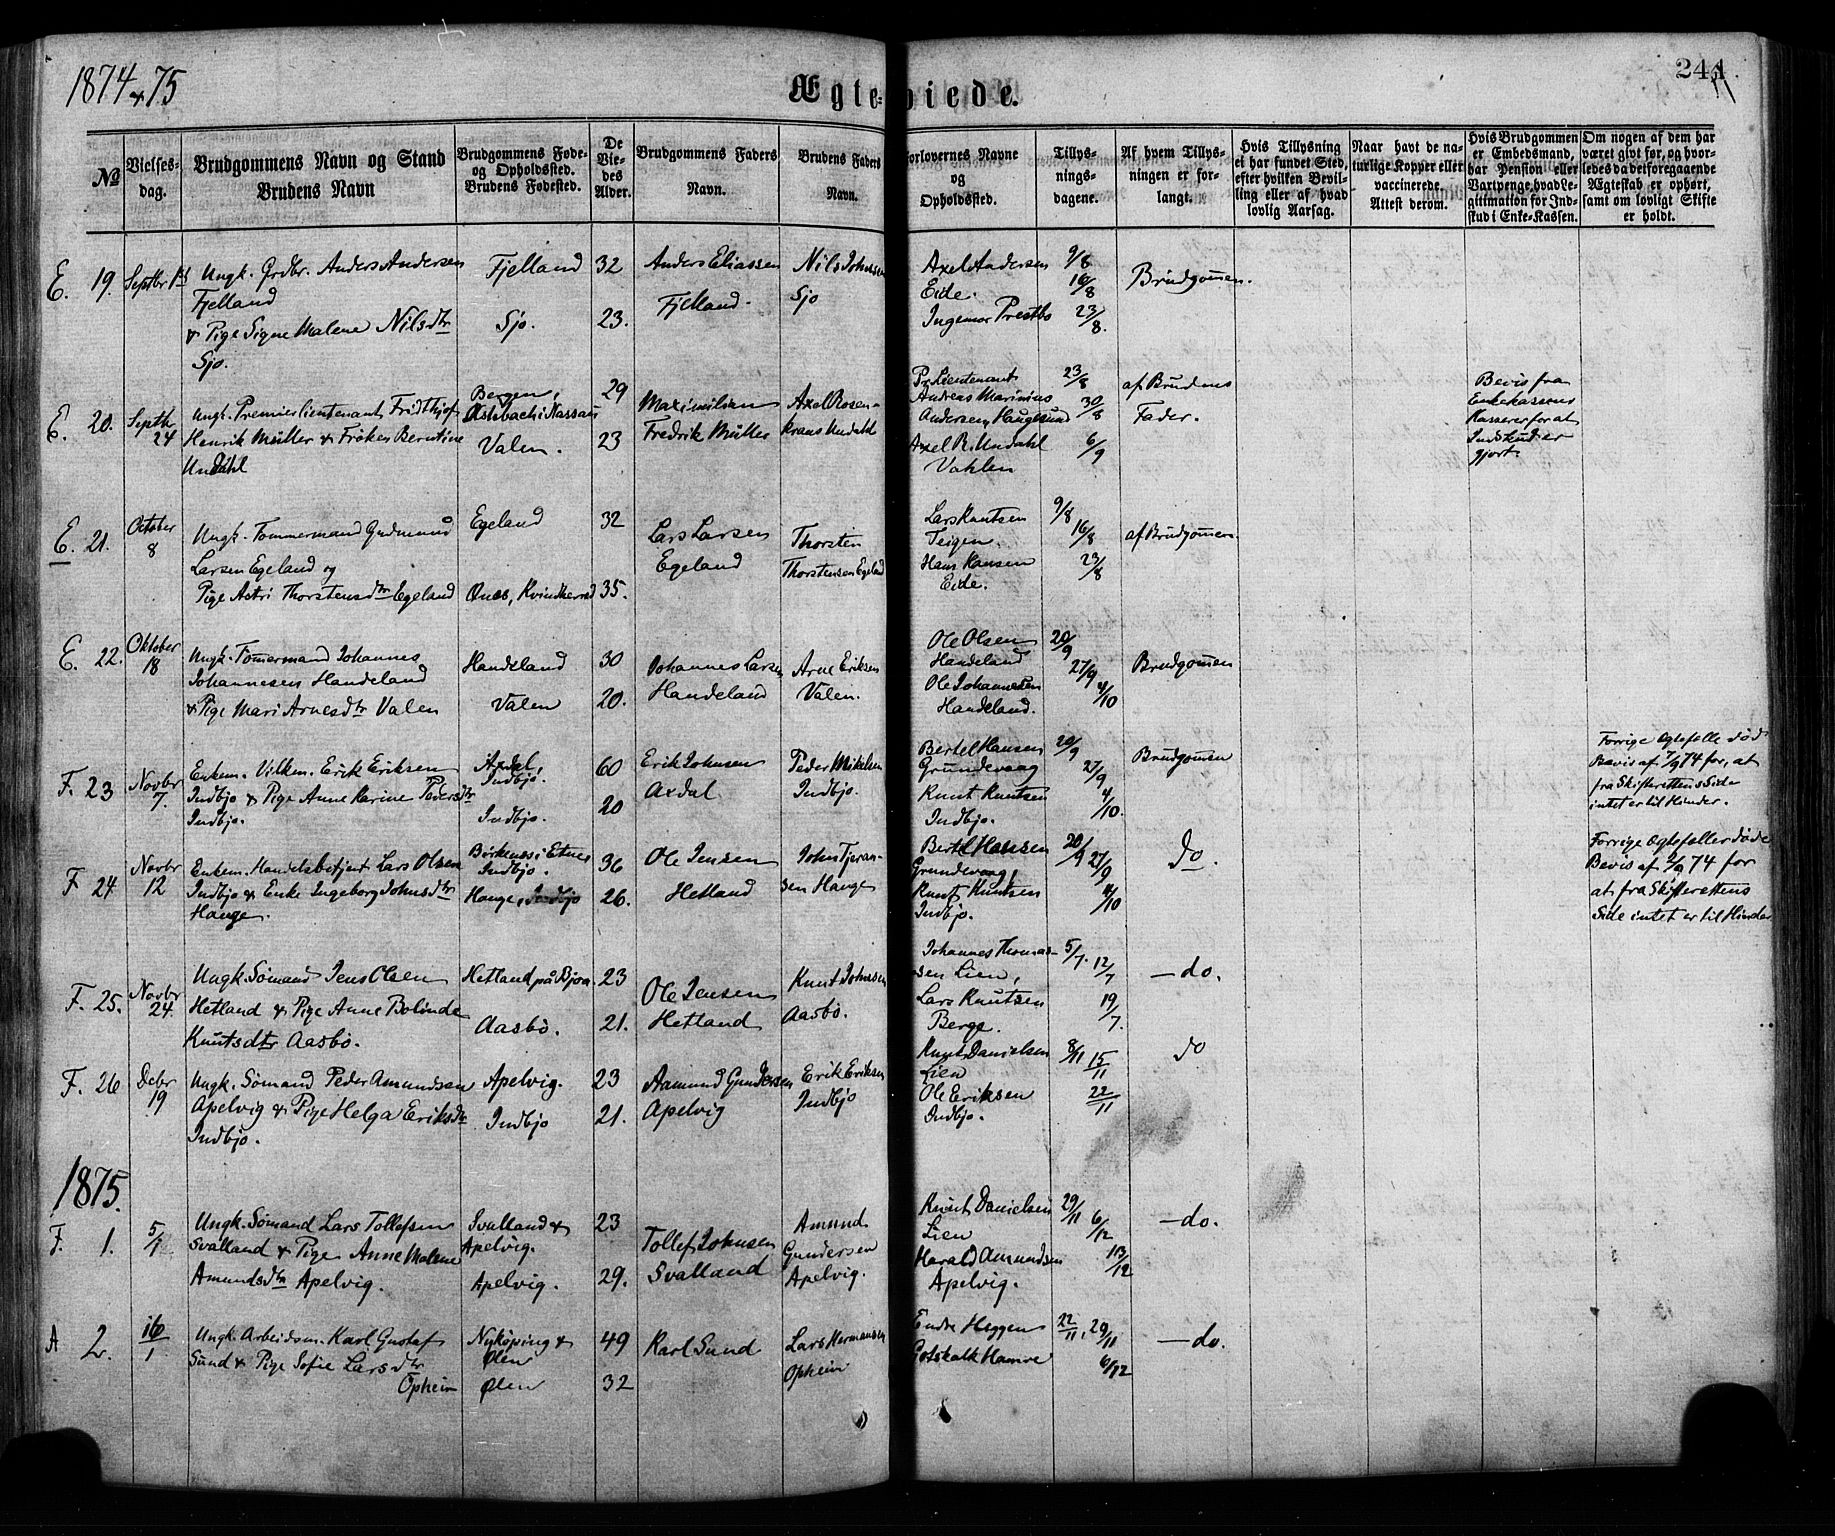 1874 & 75
Ægteviede.
241
№
Vielsesdag.
Brudgommens Navn og Stand
Brudens Navn
Brudgommens Føde- og Opholdssted.
Brudens Fødested.
De Viedes Alder.
Brudgommens Faders Navn.
Brudens Faders Navn.
Forlovernes Navne og Opholdssted.
Tillysningsdagene.
Af hvem Tillysningen er forlangt.
Hvis Tillysning ei har fundet Sted, efter hvilken Bevilling eller af hvad lovlig Aarsag.
Naar havt de naturlige Kopper eller vaccinerede. Attest derom.
Hvis Brudgommen er Embedsmand, har Pension eller Vartpenge, hvad Legitimation for Indskud i Enke-Kassen.
Om nogen af dem har været givt før, og hvorledes da det foregaaende Ægteskab er ophørt, samt om lovligt Skifte er holdt.
E. 19. Septbr
Ungk. Grdbr. Anders Andersen
Fjelland
& Pige Signe Malene Nilsdtr
Sjo.
Fjelland 32
Sjo. 23.
Anders Eliassen
Fjelland.
Nils Johnsen
Sjo
Axel Andersen
Eide.
Ingemor Prestbo
9/8
16/8
23/8.
Brudgommen.
E. 20. Septbr 24
Ungk. Premierlieutenant Fridthjof
Henrik Müller & Frøken Berntine
Undahl
Bergen, 29
i Nassau
Valen. 23
Maximilian
Fredrik Müller
Axel Rosenkrans Undahl
Pr. Lieutenant
Andreas Marinius
Andersen, Haugesund
Axel R. Undahl
Vahlen
23/8
30/8
6/9
af Brudens
Fader.
Bevis fra
Enkekassens
Kasserer for at
Indskud er
gjort.
E. 21. October 8
Ungk. Tømmermand Gudmund
Larsen Egeland og
Pige Astri Thorstensdtr Egeland
Egeland 32
Qnæs, Kvindherred 35.
Lars Larsen
Egeland
Thorsten
Thorstensen Egeland
Lars Knutsen
Teigen.
Hans Hansen
Eide.
9/8
16/8
23/8
af Brudgommen.
E. 22. Oktober 18
Ungk. Tømmermand Johannes
Johannesen Handeland
& Pige Mari Arnesdtr Valen
Handeland 30
Valen 20.
Johannes Larsen
Handeland
Arne Eriksen
Valen.
Ole Olsen
Handeland
Ole Johannesen
Handeland.
20/9
27/9
4/10
Brudgommen
F. 23 Novbr 7.
Enkem. Vilkm. Erik Eriksen
Indbjo & Pige Anne Karine Pedersdtr
Indbjo.
Axdal, 60
Indbjo.
Indbjo. 20
Erik Johnsen
Axdal
Peder Mikelsen
Indbjo.
Bertel Hansen
Grundevaag
Knut Knutsen
Indbjo.
20/9
27/9
4/10.
Brudgommen
Forrige Ægtefelle død
Bevis af 7/9 74 for, at
fra Skifterettens Side
intet er til Hinder.
F 24. Novbr 12
Enkem. Handelsbetjent Lars Olsen
Indbjo & Enke Ingeborg Johnsdtr
Hauge.
Birkenes i Etne 36
Indbjo.
Hauge, Indbjo 26.
Ole Jensen
Hetland
John Tjeransen Hauge
Bertel Hansen
Grundevaag,
Knut Knutsen
Indbjo.
20/9 27/9
4/10
do.
Forrige Ægtefeller døde
Bevis af 2/9 74 for
at fra Skifterettens
Side intet er til Hinder
F. 25. Novbr 24.
Ungk. Sømand Jens Olsen
Hetland & Pige Anne Bolinde
Knutsdtr Aasbø.
Hetland på Bjoa. 23
Aasbø. 21.
Ole Jensen
Hetland
Knut Johnsen
Aasbø.
Johannes Thomassen Lien,
Lars Knutsen
Berge.
5/7. 12/7
19/7.
— do.
F. 26 Debr 19
Ungk. Sømand Peder Amundsen
Apelvig & Pige Helga Eriksdtr
Indbjo.
Apelvig. 23
Indbjo 21.
Aamund Gundersen
Apelvig
Erik Eriksen
Indbjo
Knut Danielsen
Lien
Ole Eriksen
Indbjo.
8/11 15/11
22/11
do
1875.
F. 1. 5/1
Ungk. Sømand Lars Tollefsen
Svalland & Pige Anne Malene
Amundsdtr Apelvig.
Svalland & 23
Apelvig.
Apelvig. 29.
Tollef Johnsen
Svalland
Amund
Gundersen
Apelvig.
Knut Danielsen
Lien
Harald Amundsen
Apelvig.
29/11 6/12
13/12
— do.
A 2. 16/1
Ungk. Arbeidsm. Karl Gustaf
Sund & Pige Sofie Larsdtr
Opheim
Nykøping & 49
Ølen
Ølen 32
Karl Sund
Lars Hermansen
Opheim
Endre Heggen
Gotskalk Hamre
22/11, 29/11
6/12
— do.